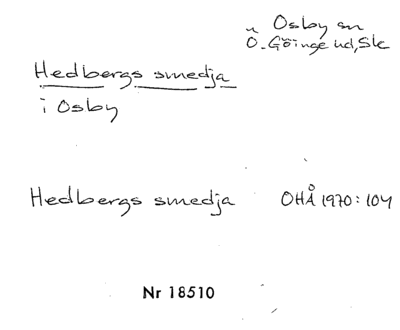 Osby sn
Ö. Göinge hd, Sk
Hedbergs smedja
i Osby
Hedbergs smedja OHÅ 1970:104
Nr 18510